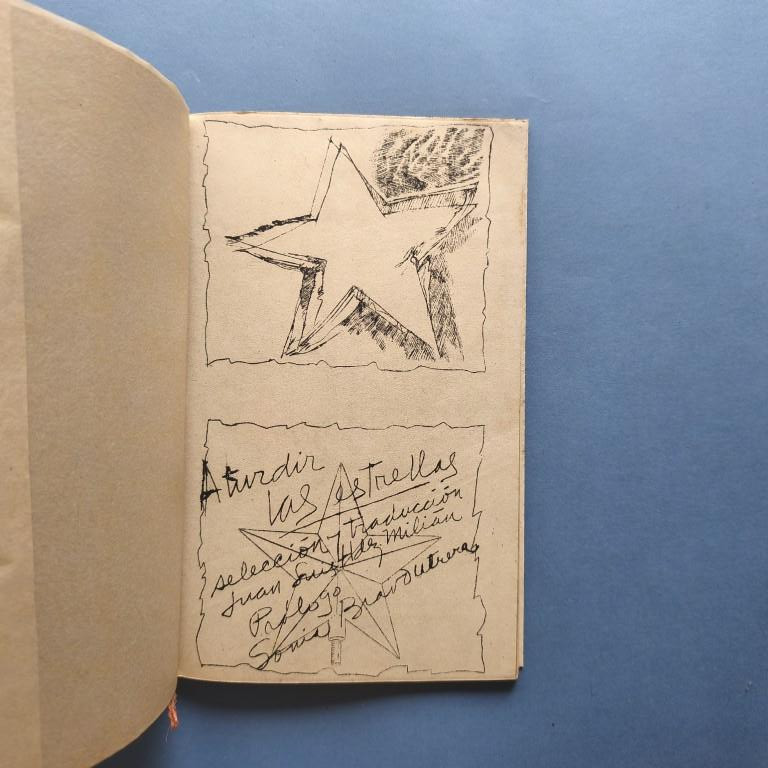 Aturdir
las estrellas
selección y traducción
Juan Luis Hdez Milián
Prólogo
Sonia Bravo Utrera